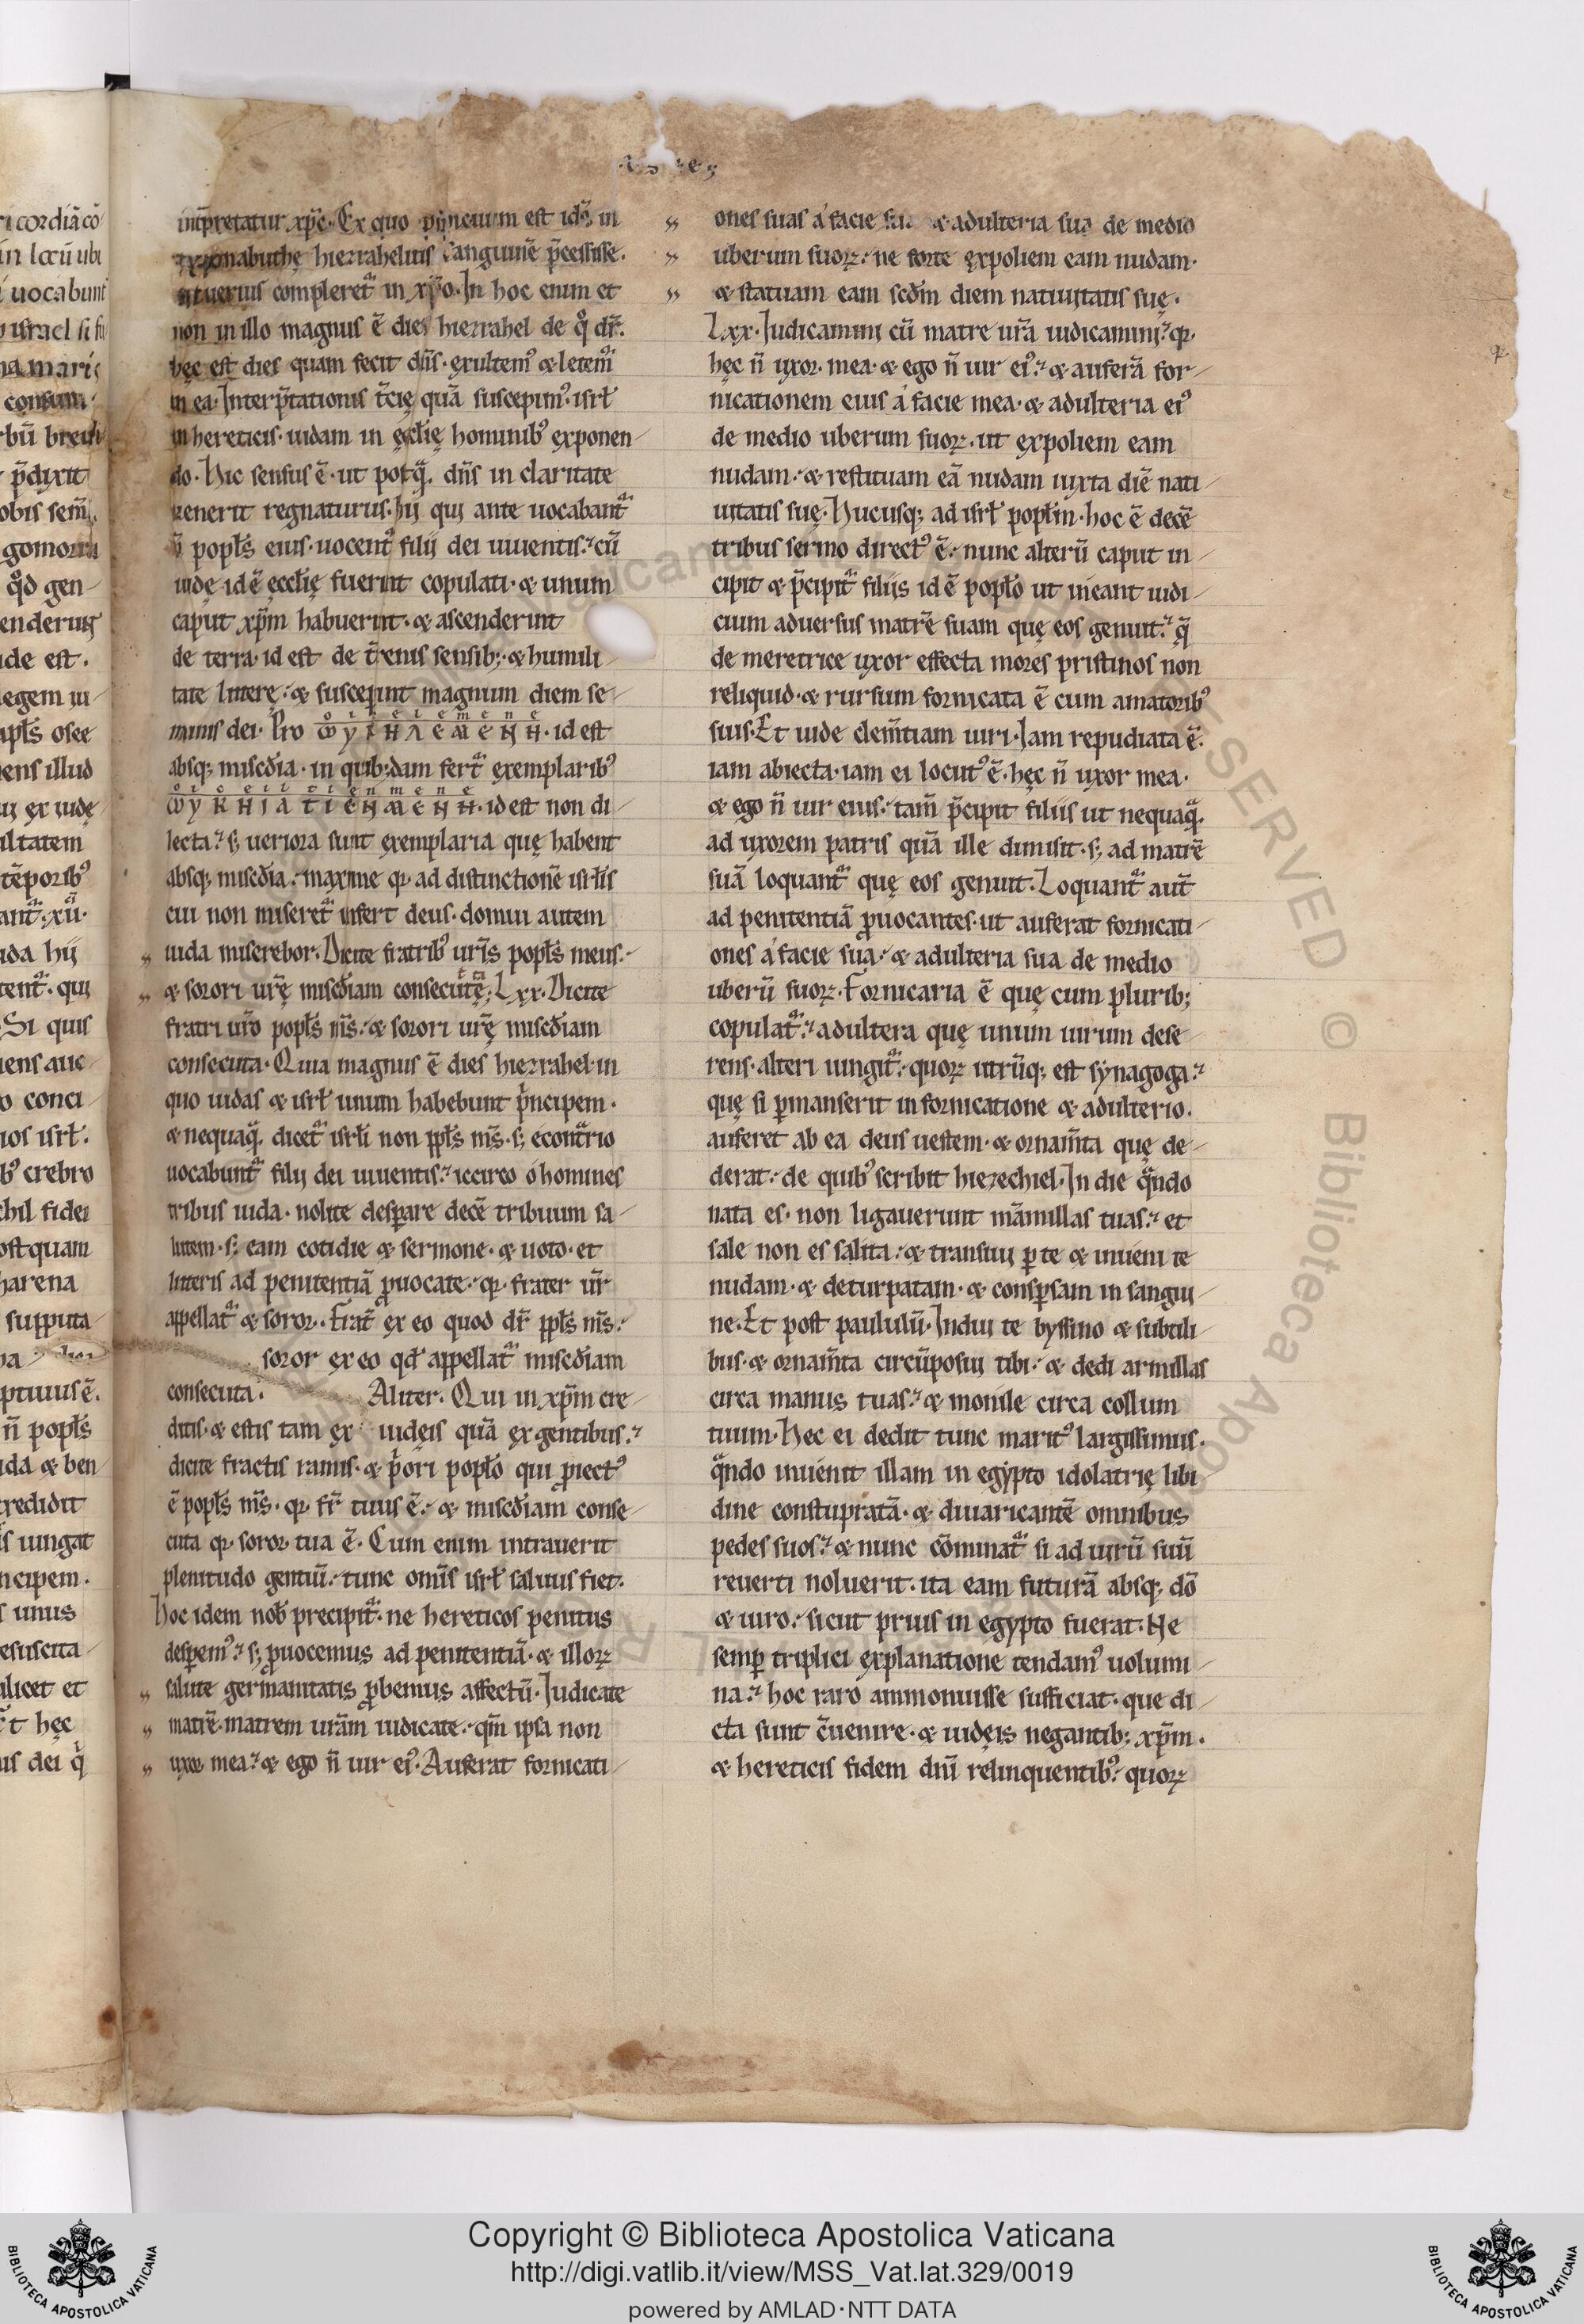 int̄pretatur xp̄c. Ex quo principium est id̄o in
hierrahelitis sanguinē p̄cessisse.
ut uerius compleret᷑ in xp̄o. In hoc enim et
non in illo magnus ē dies hierrahel de q̊ dr̄.
hęc est dies quam fecit dn̄s. exultemꝰ & letem᷑
in ea. Interp̄tationis t̄cię quā suscepimꝰ. isrł
in hereticis. iudam in ęcclię hominibꝰ exponen-
do. Hic sensus ē. ut potq̄. dn̄s in claritate
uenerit regnaturus. hii qui ante uocabant᷑
n̄ popłs eius. uocentꝰ filii dei uiuentis. cū
iudę. id ē ecclię fuerint copulati. & unum
caput xp̄m habuerint. & ascenderint
de terra. id est de t̄renis sensib; & humili-
tate litterę. & susceperint magnum diem se-
minis dei. Pro
oicelemene
ѡyκηλεмεηη. id est
absq; miscd̄ia. in quib;dam fert᷑ exemplaribꝰ
ѡyκηιατιεηмεηη. id est non di-
lecta. s; ueriora sunt exemplaria quę habent
absq; miscd̄ia. maxime qꝛ ad distinctionē isrłis
cui non miseret᷑ infert deus. domui autem
iuda miserebor. Dicite fratribꝰ ur̄is popłs meus.
& sorori ur̄ę misc̄diam consecutę; Lxx. Dicite
fratri ur̄o popłs m̄s. & sorori ur̄ę misc̄diam
consecuta. Quia magnus ē dies hierrahel. in
quo iudas & isrł unum habebunt p̄ncipem.
& nequaq̄. dicet᷑ isrłi non ppłs m̄s. s; econt᷑rio
uocabunt᷑ filii dei uiuentis. iccirco ó homines
tribus iuda. nolite desꝑare decē tribuum sa-
lutem. s; eam cotidie & sermone. & uoto. et
litteris ad penitentiā ꝓuocate. qꝛ frater ur̄
appellat᷑ & soror. Frat̄ ex eo quod dr̄ ppłs m̄s.
soror ex eo qd̄ appellat᷑ misc̄diam
consecuta. Aliter. Qui in xp̄m cre-
ditis. & estis tam ex iudęis quā ex gentibus.
dicite fractis ramis. & p̄ori popło qui ꝓiectꝰ
ē popłs m̄s. qꝛ fr̄ tuus ē. & misc̄diam conse-
cuta qꝛ soror tua ē. Cum enim intrauerit
plenitudo gentiū. tunc omīs isrł saluus fiet.
Hoc idem nob̄ precipit᷑. ne hereticos penitus
desꝑemꝰ. s; ꝓuocemus ad penitentiā. & illoꝝ
salute germanitatis ꝓbemus affectū. Iudicate
matrē. matrem ur̄am iudicate. qm̄ ipsa non
uxor mea. & ego n̄ uir eiꝰ. Auferat fornicati-
ones suas á facie sua & adulteria sua de medio
uberum suoꝝ. ne forte expoliem eam nudam.
& statuam eam scd̄m diem natiuitatis suę.
Lxx. Iudicamini cū matre ur̄a iudicamini. qꝛ
hęc n̄ uxor mea. & ego n̄ uir eiꝰ. & auferā for-
nicationem eius á facie mea. & adulteria eiꝰ
de medio uberum suoꝝ. ut expoliem eam
nudam. & restituam eā nudam iuxta diē nati-
uitatis suę. Hucusq; ad isrł popłm. hoc ē decē
tribus sermo directꝰ ē. nunc alterū caput in-
cipit & p̄cipit᷑ filiis id ē popło ut ineant iudi-
cium aduersus matrē suam quę eos genuit. q̄
de meretrice uxor effecta mores pristinos non
reliquid. & rursum fornicata ē cum amatoribꝰ
suis. Et uide clem̄tiam uiri. Iam repudiata ē.
iam abiecta. iam ei locutꝰ ē. hęc n̄ uxor mea.
& ego n̄ uir eius. tam̄ p̄cipit filiis ut nequaq̄.
ad uxorem patris quā ille dimisit. s; ad matrē
suā loquant᷑ quę eos genuit. Loquant᷑ aut̄
ad penitentiā ꝓuocantes. ut auferat fornicati-
ones á facie sua. & adulteria sua de medio
uberū suoꝝ. Fornicaria ē quę cum plurib;
copulat᷑. adultera quę unum uirum dese-
rens. alteri iungit᷑. quoꝝ utrūq; est synagoga.
quę si ꝑmanserit in fornicatione & adulterio.
auferet ab ea deus uestem. & ornam̄ta quę de-
derat. de quibꝰ scribit hiezechiel. In die q̄ndo
nata es. non ligauerunt mām̄illas tuas. et
sale non es salita. & transiui ꝑ te & inueni te
nudam. & deturpatam. & consꝑsam in sangui-
ne. Et post paululū. Indui te byssino & subtili-
bus. & ornam̄ta circūposui tibi. & dedi armillas
circa manus tuas. & monile circa collum
tuum. Hec ei dedit tunc maritꝰ largissimus.
q̄ndo inuenit illam in egypto idolatrię libi-
dine constupratā. & diuaricantē omnibus
pedes suos. & nunc cōminat᷑ si ad uirū suū
reuerti noluerit. ita eam futurā absq; dō
& uiro. sicut prius in egypto fuerat. Ne
semꝑ triplici explanatione tendamꝰ uolumi-
na. hoc raro ammonuisse sufficiat. que di-
cta sunt c̄uenire. & iudęis negantib; xp̄m.
& hereticis fidem dn̄i relinquentibꝰ. quoꝝ
Copyright © Biblioteca Apostolica Vaticana
http://digi.vatlib.it/view/MSS_Vat.lat.329/0019
powered by AMLAD·NTT DATA